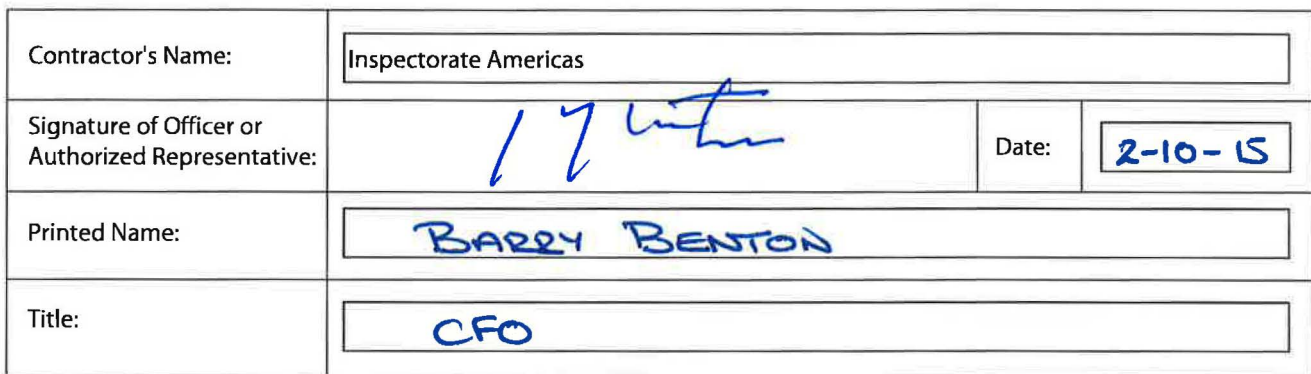 Contractor's Name:
Inspectorate Americas
Signature of Officer or
Authorized Representative:
Date:
2-10-15
Printed Name:
BARRY BENTON
Title:
CFO